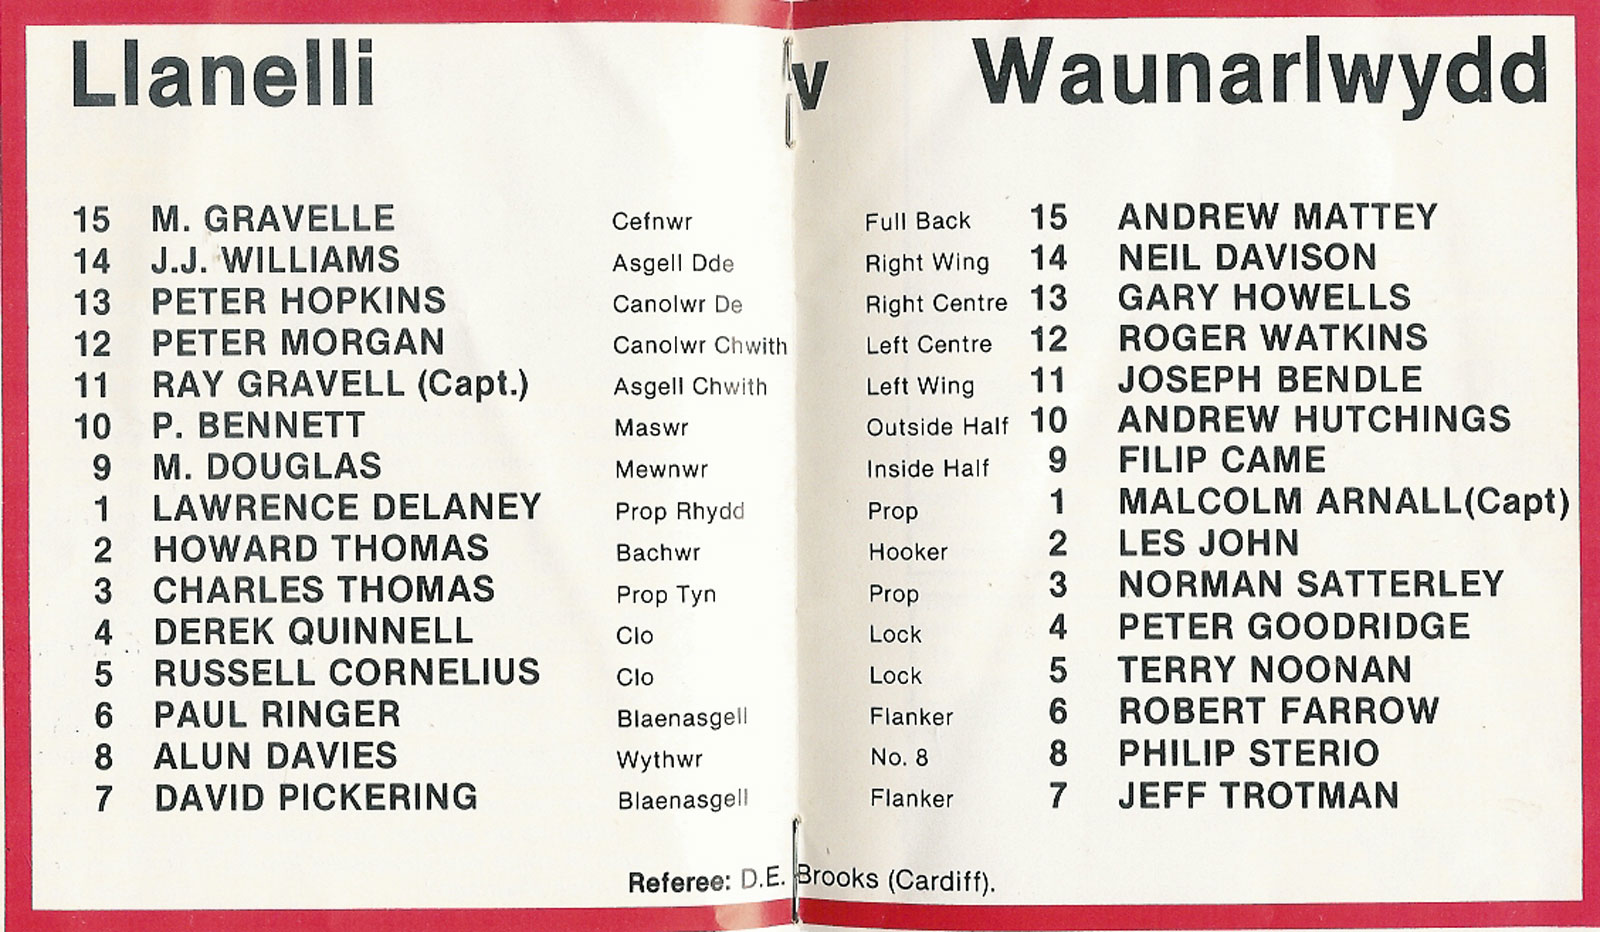 Llanelli v Waunarlwydd
15 M. GRAVELLE Cefnwr Full Back 15 ANDREW MATTEY
14 J.J. WILLIAMS Asgell Dde Right Wing 14 NEIL DAVISON
13 PETER HOPKINS Canolwr De Right Centre 13 GARY HOWELLS
12 PETER MORGAN Canolwr Chwith Left Centre 12 ROGER WATKINS
11 RAY GRAVELL (Capt.) Asgell Chwith Left Wing 11 JOSEPH BENDLE
10 P. BENNETT Maswr Outside Half 10 ANDREW HUTCHINGS
9 M. DOUGLAS Mewnwr Inside Half 9 FILIP CAME
1 LAWRENCE DELANEY Prop Rhydd Prop 1 MALCOLM ARNALL(Capt)
2 HOWARD THOMAS Bachwr Hooker 2 LES JOHN
3 CHARLES THOMAS Prop Tyn Prop 3 NORMAN SATTERLEY
4 DEREK QUINNELL Clo Lock 4 PETER GOODRIDGE
5 RUSSELL CORNELIUS Clo Lock 5 TERRY NOONAN
6 PAUL RINGER Blaenasgell Flanker 6 ROBERT FARROW
8 ALUN DAVIES Wythwr No. 8 8 PHILIP STERIO
7 DAVID PICKERING Blaenasgell Flanker 7 JEFF TROTMAN
Referee: D.E. Brooks (Cardiff).